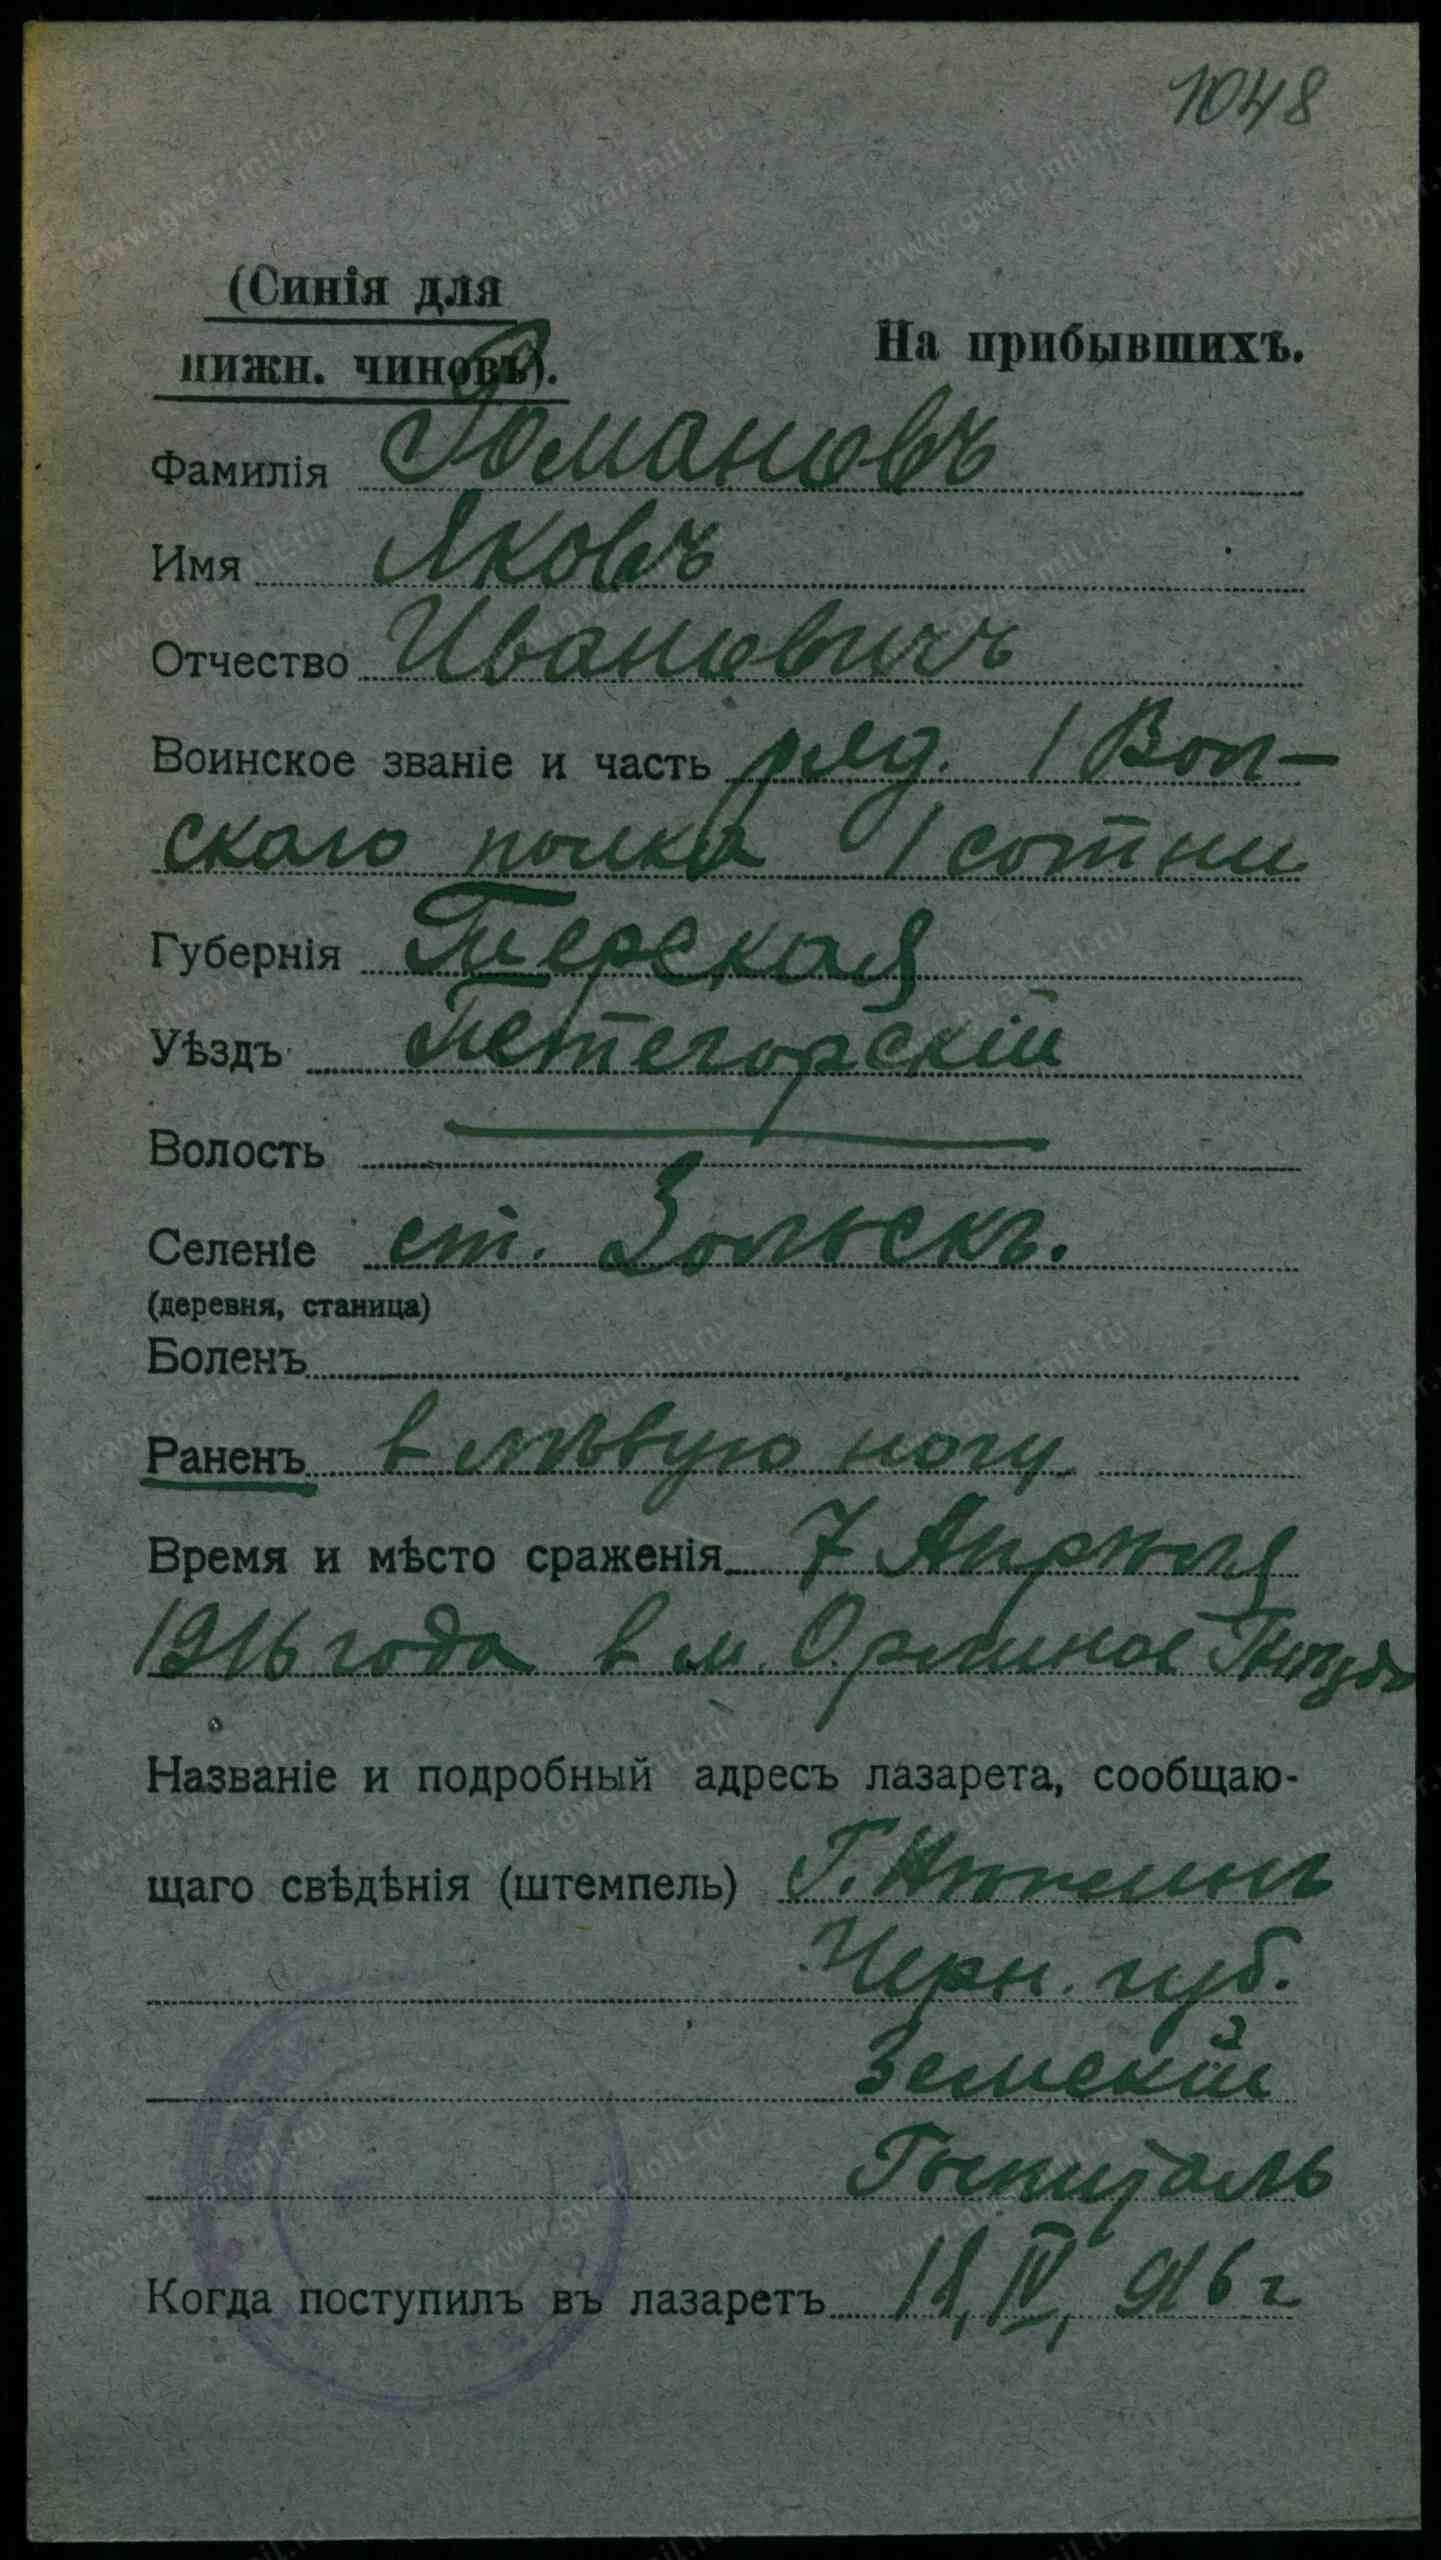 1048
(Синія для
нижн. чиновъ).
На прибывшихъ.
Фамилія Романовъ
Имя Яковъ
Отчество Ивановичъ
Воинское званіе и часть ряд. 1 Вол-
скаго полка 1 сотни
Губернія Терская
Уѣздъ Петегорскій
Волость
Селеніе ст. Зольскъ.
(деревня, станица)
Боленъ
Раненъ в лѣвую ногу
Время и мѣсто сраженія 7 Апрѣля
1916 года в м. Орлиное Гнѣздо
Названіе и подробный адресъ лазарета, сообщаю-
щаго свѣдѣнія (штемпель) Г. Нѣжинъ
Черн. губ.
Земскій
Госпиталь
Когда поступилъ въ лазаретъ IV, 916 г
www.gwar.mil.ru